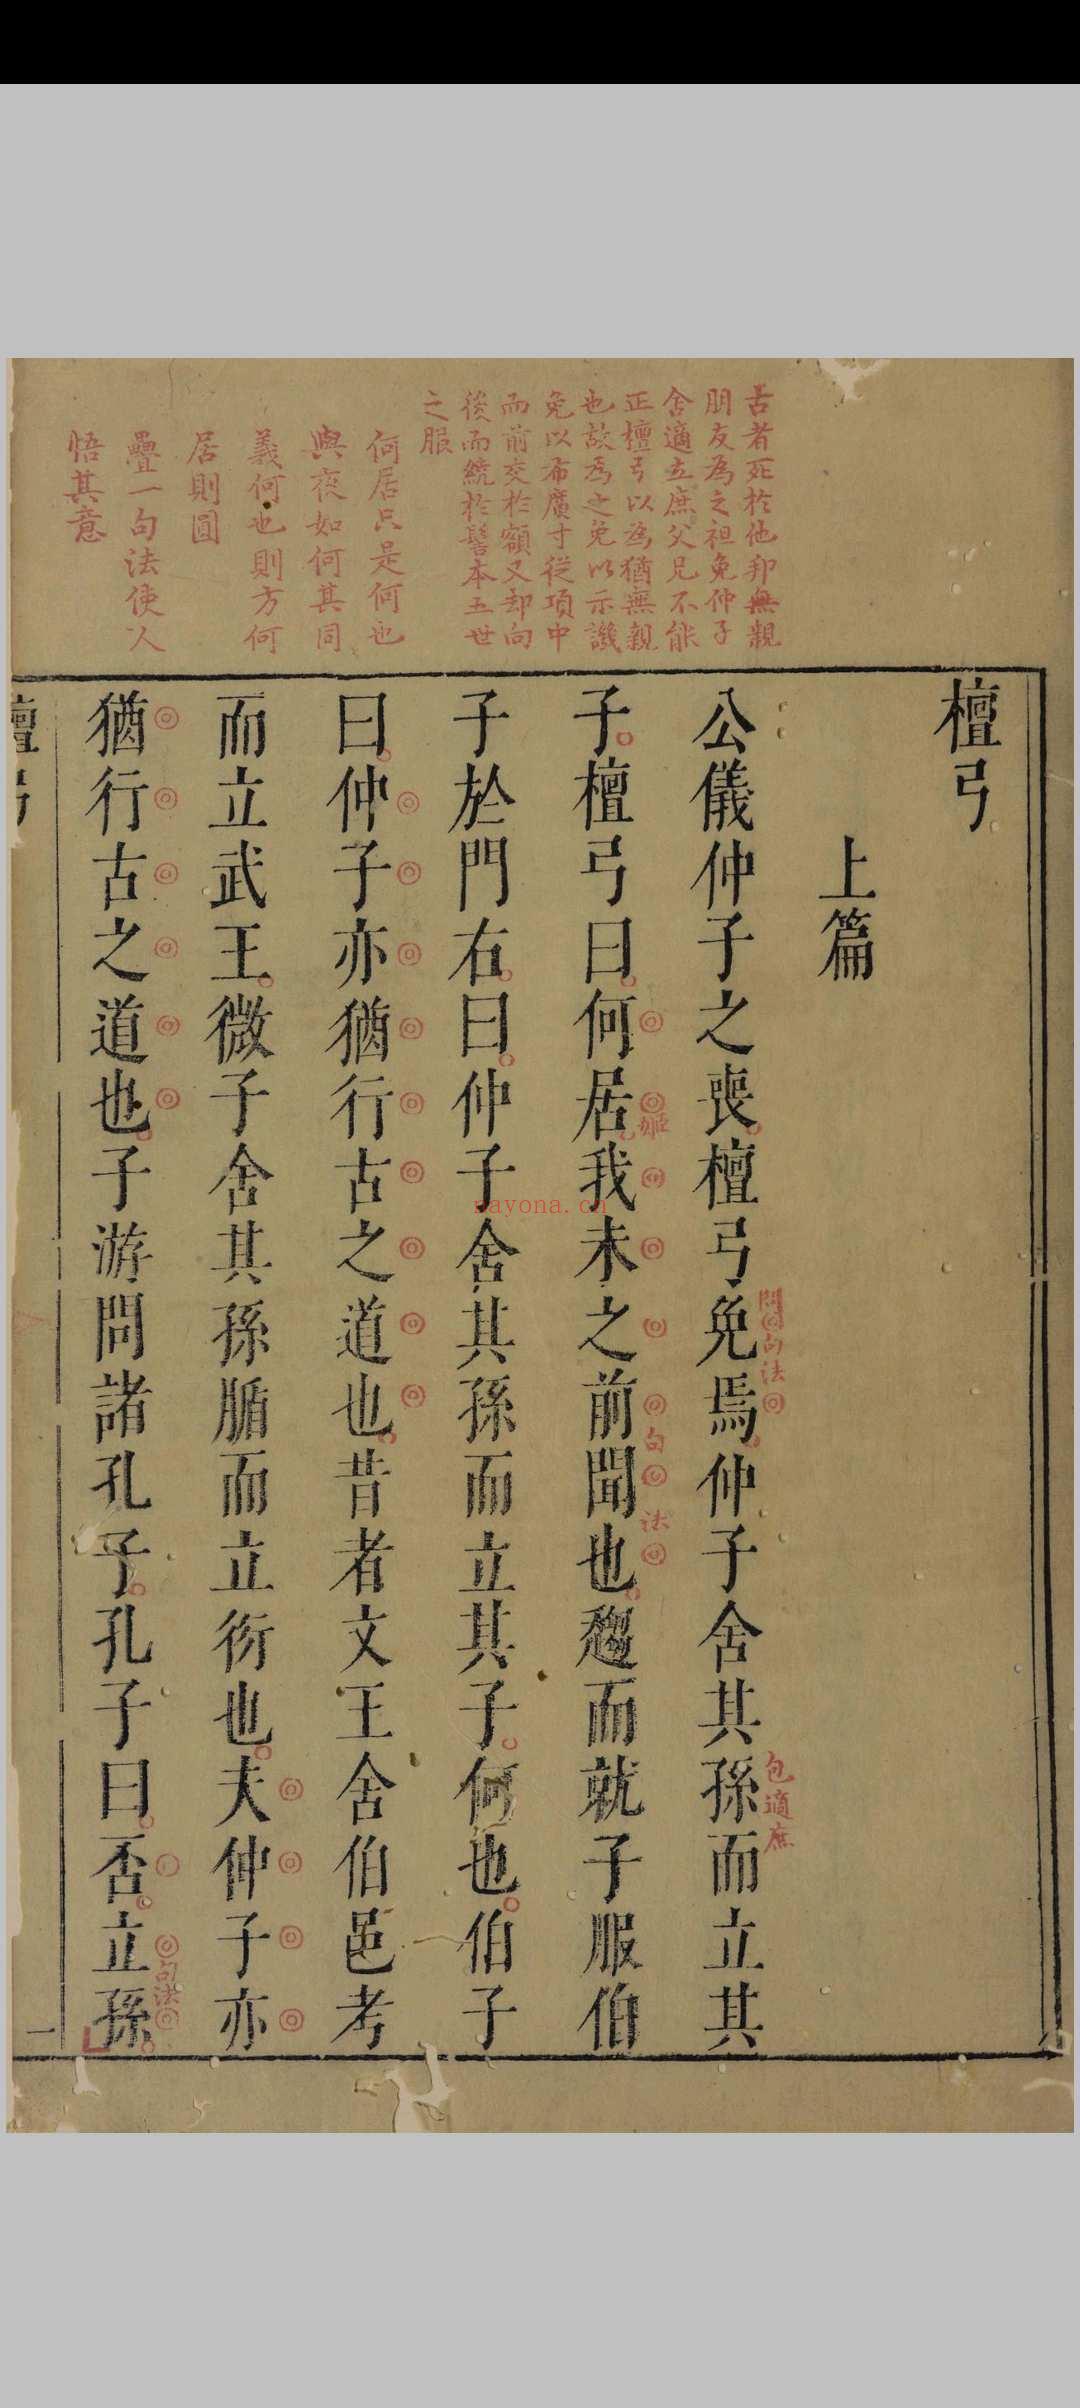 檀弓
上篇
公儀仲子之喪檀弓免焉仲子舍其孫而立其
子檀弓曰何居我未之前聞也趨而就子服伯
子於門右曰仲子舍其孫而立其子何也伯子
曰仲子亦猶行古之道也昔者文王舍伯邑考
而立武王微子舍其孫腯而立衍也夫仲子亦
猶行古之道也子游問諸孔子孔子曰否立孫
古者死於他邦無親
朋友為之袒免仲子
舍適立庶父兄不能
正檀弓以為猶無親
也故為之免以示譏
免以布廣寸從項中
而前交於額又却向
後而繞於髻本五世
之服
何居只是何也
與夜如何其同
義何也則方何
居則圓
疊一句法使人
悟其意
句法
包適庶
姬
句法
句法
檀弓
一
nayona.cn